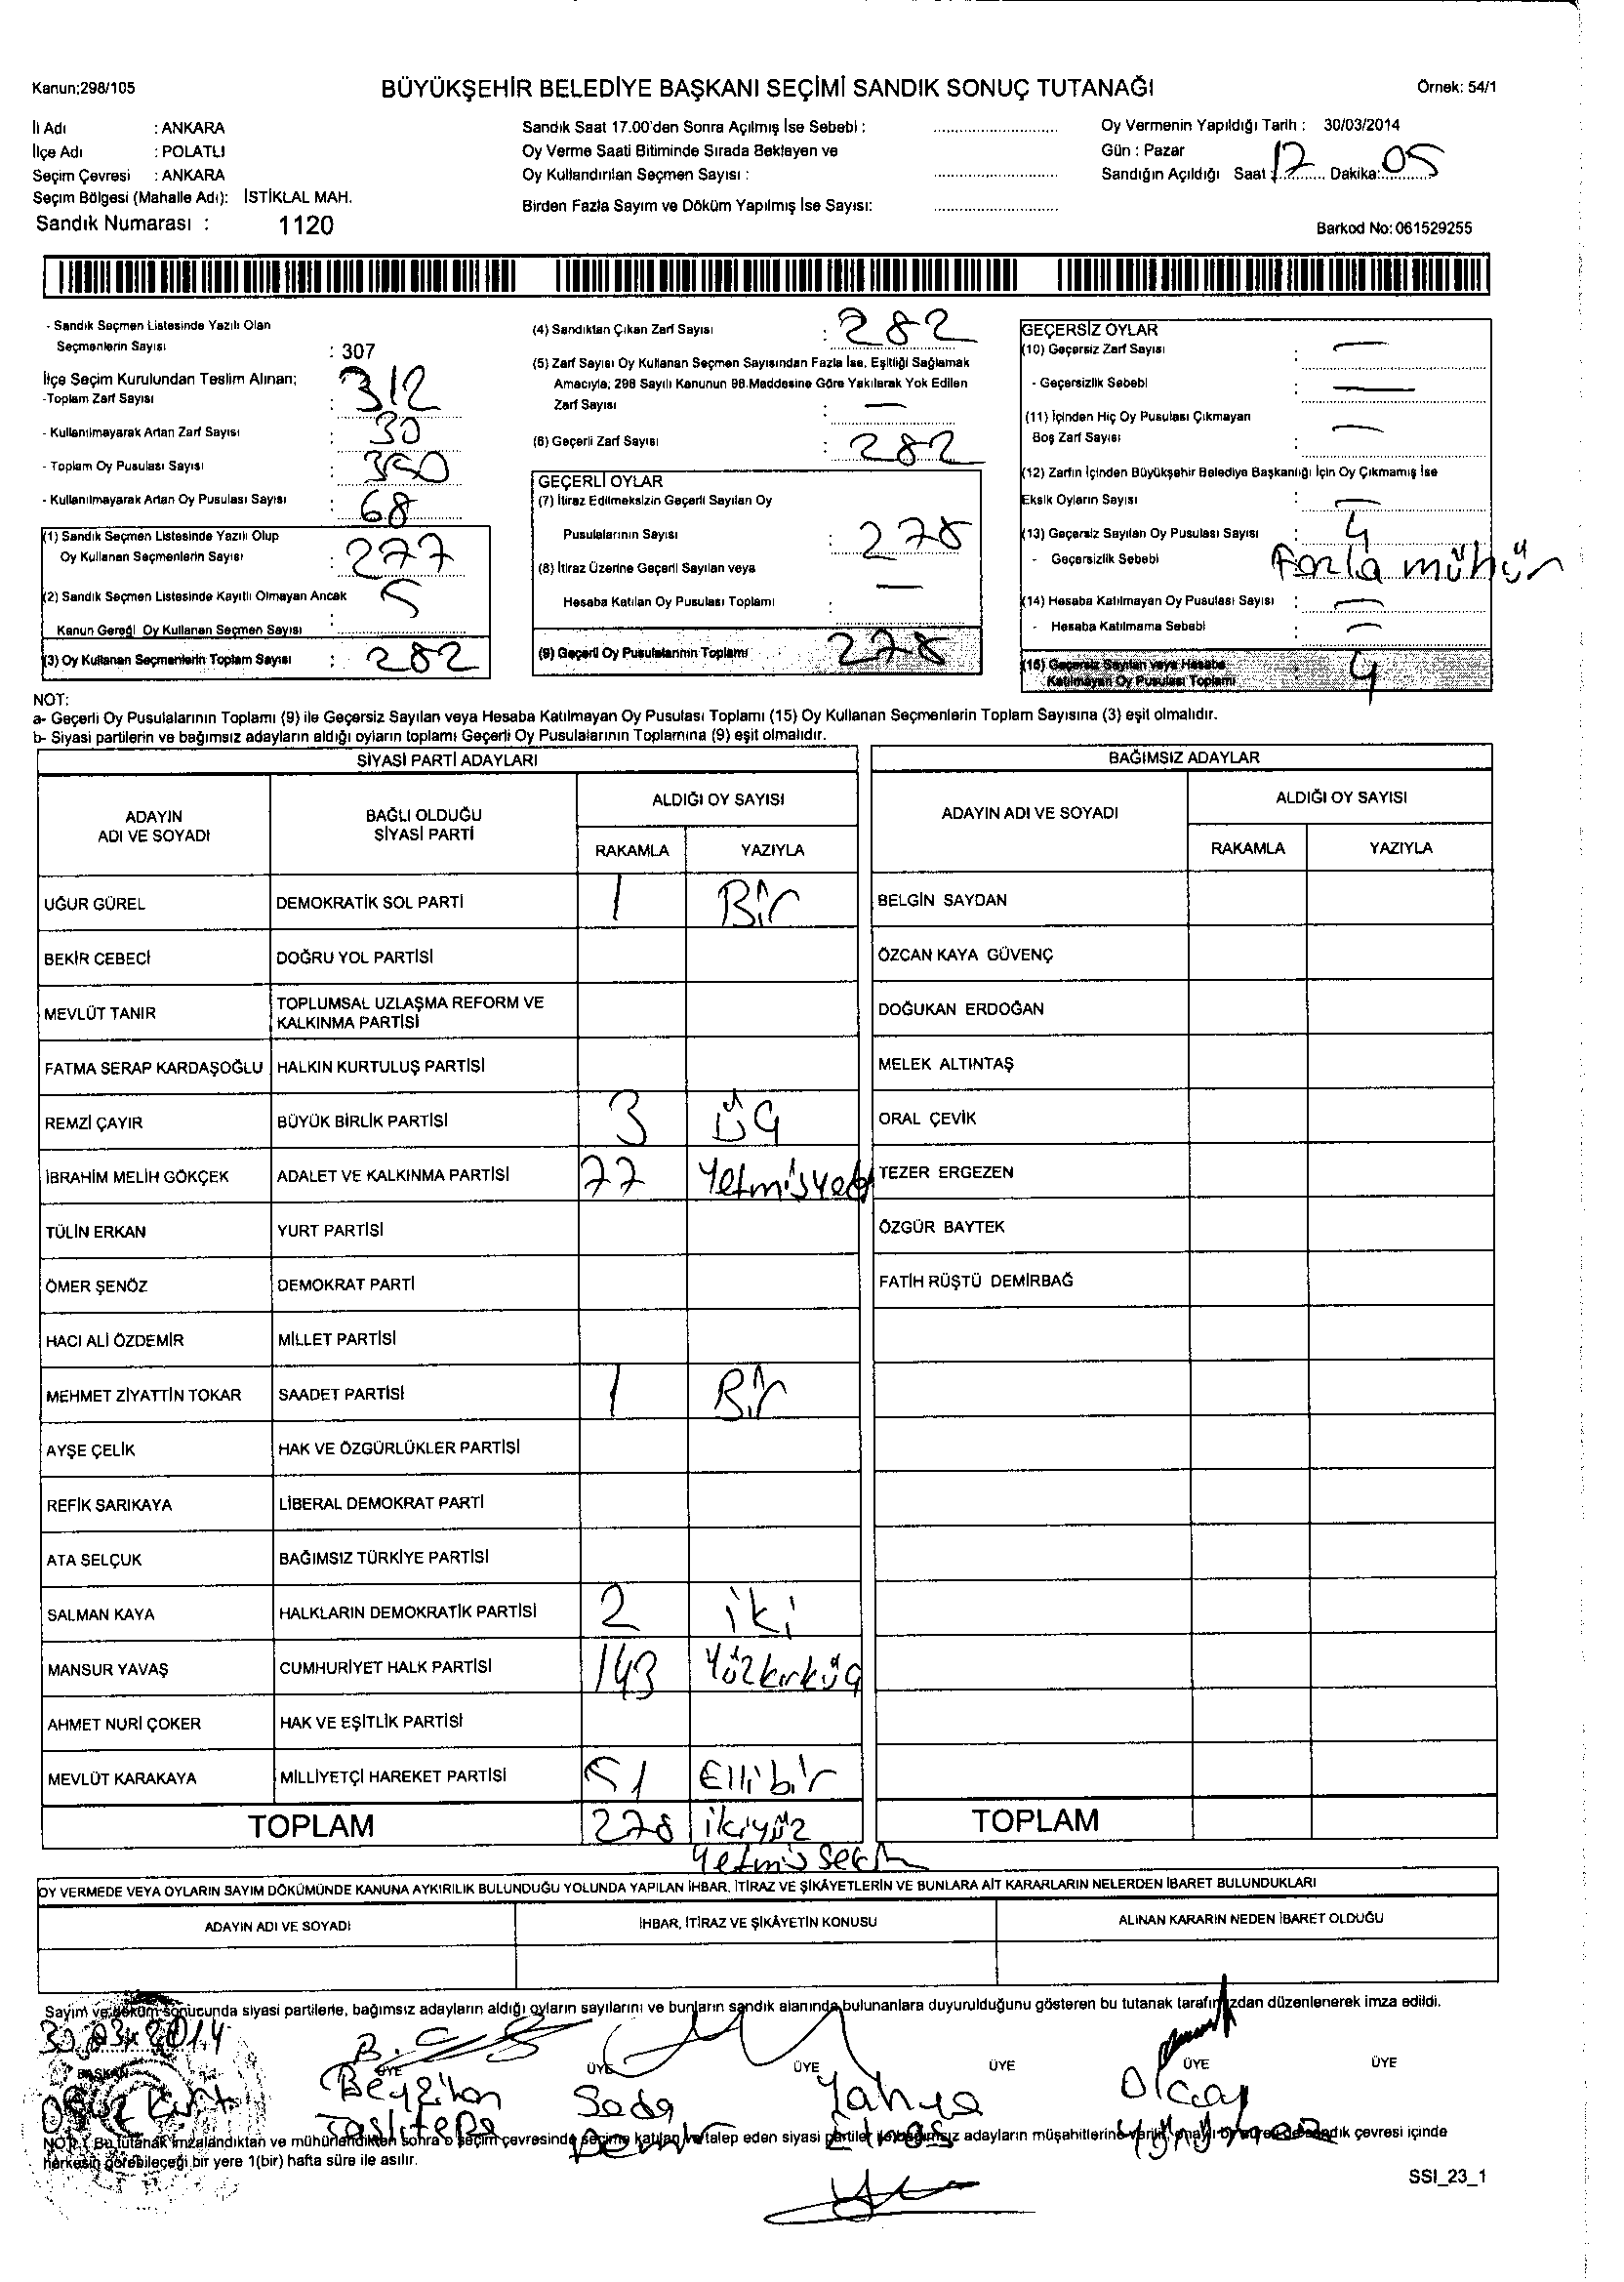 Kanun;298/105
BÜYÜKŞEHİR BELEDİYE BAŞKANI SEÇİMİ SANDIK SONUÇ TUTANAĞI
Örnek: 54/1
İli Adı : ANKARA
İlçe Adı : POLATLI
Seçim Çevresi : ANKARA
Seçim Bölgesi (Mahalle Adı): İSTİKLAL MAH.
Sandık Numarası : 1120
Sandık Saat 17.00'den Sonra Açılmış İse Sebebi :
Oy Verme Saati Bitiminde Sırada Bekleyen ve
Oy Kullandırılan Seçmen Sayısı :
Birden Fazla Sayım ve Döküm Yapılmış İse Sayısı:
Oy Vermenin Yapıldığı Tarih : 30/03/2014
Gün : Pazar
Sandığın Açıldığı Saat : 17 Dakika: 05
Barkod No: 061529255
- Sandık Seçmen Listesinde Yazılı Olan
Seçmenlerin Sayısı : 307
İlçe Seçim Kurulundan Teslim Alınan;
-Toplam Zarf Sayısı : 312
- Kullanılmayarak Artan Zarf Sayısı : 30
- Toplam Oy Pusulası Sayısı : 350
- Kullanılmayarak Artan Oy Pusulası Sayısı : 68
(1) Sandık Seçmen Listesinde Yazılı Olup
Oy Kullanan Seçmenlerin Sayısı : 277
(2) Sandık Seçmen Listesinde Kayıtlı Olmayan Ancak
Kanun Gereği Oy Kullanan Seçmen Sayısı : 5
(3) Oy Kullanan Seçmenlerin Toplam Sayısı : 282
(4) Sandıktan Çıkan Zarf Sayısı : 282
(5) Zarf Sayısı Oy Kullanan Seçmen Sayısından Fazla İse, Eşitliği Sağlamak
Amacıyla; 298 Sayılı Kanunun 98.Maddesine Göre Yakılarak Yok Edilen
Zarf Sayısı : —
(6) Geçerli Zarf Sayısı : 282
GEÇERLİ OYLAR
(7) İtiraz Edilmeksizin Geçerli Sayılan Oy
Pusulalarının Sayısı : 278
(8) İtiraz Üzerine Geçerli Sayılan veya
Hesaba Katılan Oy Pusulası Toplamı : —
(9) Geçerli Oy Pusulalarının Toplamı 278
GEÇERSİZ OYLAR
(10) Geçersiz Zarf Sayısı : —
- Geçersizlik Sebebi : —
(11) İçinden Hiç Oy Pusulası Çıkmayan
Boş Zarf Sayısı : —
(12) Zarfın İçinden Büyükşehir Belediye Başkanlığı İçin Oy Çıkmamış İse
Eksik Oyların Sayısı : —
(13) Geçersiz Sayılan Oy Pusulası Sayısı : 4
- Geçersizlik Sebebi Fazla mühür
(14) Hesaba Katılmayan Oy Pusulası Sayısı : —
- Hesaba Katılmama Sebebi : —
(15) Geçersiz Sayılan veya Hesaba
Katılmayan Oy Pusulası Toplamı : 4
NOT:
a- Geçerli Oy Pusulalarının Toplamı (9) ile Geçersiz Sayılan veya Hesaba Katılmayan Oy Pusulası Toplamı (15) Oy Kullanan Seçmenlerin Toplam Sayısına (3) eşit olmalıdır.
b- Siyasi partilerin ve bağımsız adayların aldığı oyların toplamı Geçerli Oy Pusulalarının Toplamına (9) eşit olmalıdır.
SİYASİ PARTİ ADAYLARI
ADAYIN
ADI VE SOYADI
BAĞLI OLDUĞU
SİYASİ PARTİ
ALDIĞI OY SAYISI
RAKAMLA YAZIYLA
UĞUR GÜREL DEMOKRATİK SOL PARTİ 1 Bir
BEKİR CEBECİ DOĞRU YOL PARTİSİ
MEVLÜT TANIR TOPLUMSAL UZLAŞMA REFORM VE
KALKINMA PARTİSİ
FATMA SERAP KARDAŞOĞLU HALKIN KURTULUŞ PARTİSİ
REMZİ ÇAYIR BÜYÜK BİRLİK PARTİSİ 3 ÜÇ
İBRAHİM MELİH GÖKÇEK ADALET VE KALKINMA PARTİSİ 77 Yetmişyedi
TÜLİN ERKAN YURT PARTİSİ
ÖMER ŞENÖZ DEMOKRAT PARTİ
HACI ALİ ÖZDEMİR MİLLET PARTİSİ
MEHMET ZİYATTİN TOKAR SAADET PARTİSİ 1 Bir
AYŞE ÇELİK HAK VE ÖZGÜRLÜKLER PARTİSİ
REFİK SARIKAYA LİBERAL DEMOKRAT PARTİ
ATA SELÇUK BAĞIMSIZ TÜRKİYE PARTİSİ
SALMAN KAYA HALKLARIN DEMOKRATİK PARTİSİ 2 iki
MANSUR YAVAŞ CUMHURİYET HALK PARTİSİ 143 Yüzkırküç
AHMET NURİ ÇOKER HAK VE EŞİTLİK PARTİSİ
MEVLÜT KARAKAYA MİLLİYETÇİ HAREKET PARTİSİ 51 Ellibir
TOPLAM 278 ikiyüz
Yetmiş sekiz
BAĞIMSIZ ADAYLAR
ADAYIN ADI VE SOYADI
ALDIĞI OY SAYISI
RAKAMLA YAZIYLA
BELGİN SAYDAN
ÖZCAN KAYA GÜVENÇ
DOĞUKAN ERDOĞAN
MELEK ALTINTAŞ
ORAL ÇEVİK
TEZER ERGEZEN
ÖZGÜR BAYTEK
FATİH RÜŞTÜ DEMİRBAĞ
TOPLAM
OY VERMEDE VEYA OYLARIN SAYIM DÖKÜMÜNDE KANUNA AYKIRILIK BULUNDUĞU YOLUNDA YAPILAN İHBAR, İTİRAZ VE ŞİKÂYETLERİN VE BUNLARA AİT KARARLARIN NELERDEN İBARET BULUNDUKLARI
ADAYIN ADI VE SOYADI
İHBAR, İTİRAZ VE ŞİKÂYETİN KONUSU
ALINAN KARARIN NEDEN İBARET OLDUĞU
Sayım ve döküm sonucunda siyasi partilerle, bağımsız adayların aldığı oyların sayılarını ve bunların sandık alanında bulunanlara duyurulduğunu gösteren bu tutanak tarafımızdan düzenlenerek imza edildi.
30.03.2014
BAŞKAN ÜYE ÜYE ÜYE ÜYE ÜYE ÜYE
Beyzihan Seda Yahya Olcay
Taşlıtepe
NOT: Bu tutanak imzalandıktan ve mühürlendikten sonra o seçim çevresinde seçime katılan ve talep eden siyasi partiler ile bağımsız adayların müşahitlerine verilir, sandık çevresi içinde
herkesin görebileceği bir yere 1(bir) hafta süre ile asılır.
SSI_23_1